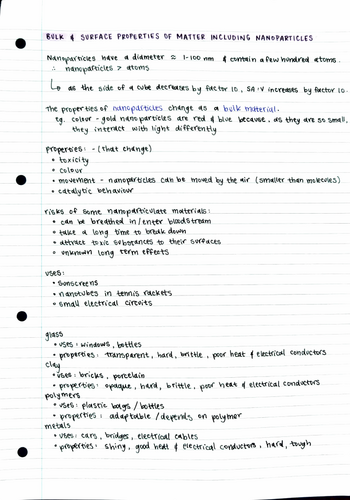 BULK & SURFACE PROPERTIES OF MATTER INCLUDING NANOPARTICLES
Nanoparticles have a diameter ≈ 1-100 nm & contain a few hundred atoms.
∴ nanoparticles > atoms
↳ as the side of a cube decreases by factor 10, SA:V increases by factor 10.
The properties of nanoparticles change as a bulk material.
eg. colour - gold nanoparticles are red & blue because, as they are so small,
they interact with light differently
properties: - (that change)
• toxicity
• colour
• movement - nanoparticles can be moved by the air (smaller than molecules)
• catalytic behaviour
risks of some nanoparticulate materials:
• can be breathed in/enter bloodstream
• take a long time to break down
• attract toxic substances to their surfaces
• unknown long term effects
uses:
• sunscreens
• nanotubes in tennis rackets
• small electrical circuits
glass
• uses: windows, bottles
• properties: transparent, hard, brittle, poor heat & electrical conductors
clay
• uses: bricks, porcelain
• properties: opaque, hard, brittle, poor heat & electrical conductors
polymers
• uses: plastic bags / bottles
• properties: adaptable / depends on polymer
metals
• uses: cars, bridges, electrical cables
• properties: shiny, good heat & electrical conductors, hard, tough